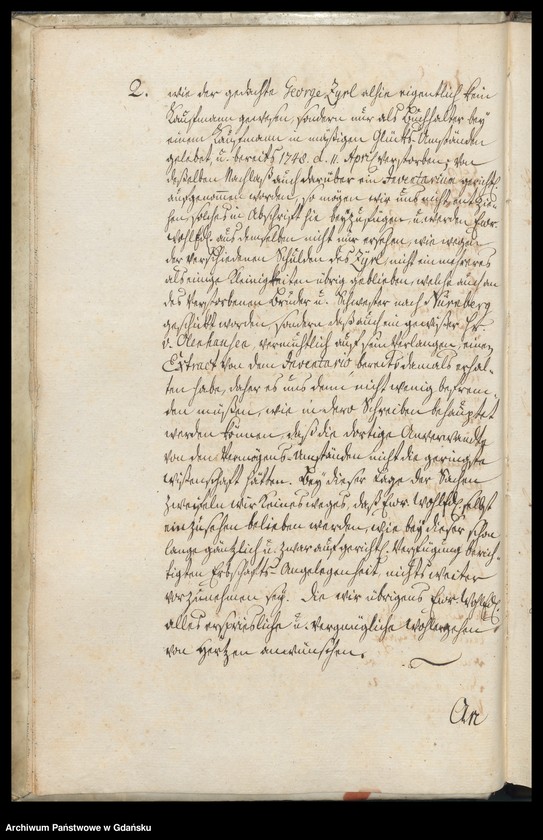 2.
wie der gedachte George Zyrl alhie eigentlich kein
Kauffmann gewesen, sondern nur als Buchhalter bey
einem Kauffmann in mäßigen Glücks-Umständen
gelebet, u. bereits 1748. d. 11. April verstorben; von
deßelben Nachlaß auch darüber ein Inventarium gerichtl.
aufgenommen worden, so mögen wir uns nicht entzie-
hen, solches in Abschrift hie beyzufügen, u. werden Ewr.
Wohledl. aus demselben nicht nur ersehen, wie wegen
der verschiedenen Schulden des Zyrl nicht ein mehreres
als einige Kleinigkeiten übrig geblieben, welche auch an
des verstorbenen Bruder u. Schwester nach Nürnberg
geschickt worden, sondern daß auch ein gewißer Hr.
v. vermuthlich auf sein Verlangen, einen
Extract von dem Inventario bereits damals erhal-
ten habe, daher es uns denn nicht wenig befrem-
den müßen, wie in dero Schreiben behauptet
werden können, daß die dortige Anverwandte
von den Vermögens-Umständen nicht die geringste
Wißenschafft hätten. Bey dieser Lage der Sachen
zweifeln wir keinesweges, daß Ewr. Wohledl. selbst
einzusehen belieben werden, wie bey dieser schon
lange gäntzlich u. zwar auf gerichtl. Verfügung berich-
tigten Erbschaffts-Angelegenheit, nichts weiter
vorzunehmen sey. Die wir übrigens Ewr. Wohledl.
alles ersprießliche u. vergnügliche Wohlergehen
von Hertzen anwünschen.
An
Archiwum Państwowe w Gdańsku